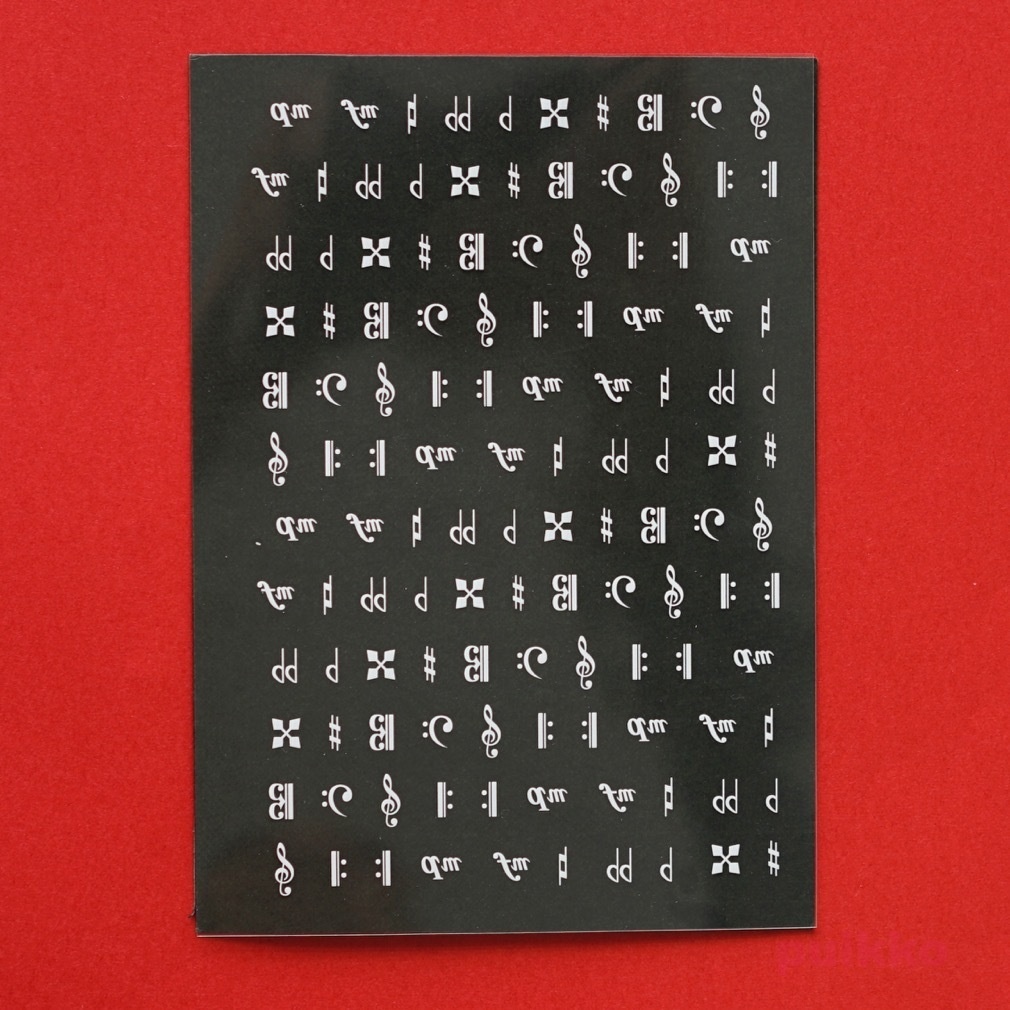 ♯ 𝄪 ♭ 𝄫 ♮ mf mp 𝄆 𝄇 𝄞
♭ 𝄫 ♮ mf mp 𝄆 𝄇 𝄞 𝄢 𝄡
♮ mf mp 𝄆 𝄇 𝄞 𝄢 𝄡 ♯ 𝄪
mp 𝄆 𝄇 𝄞 𝄢 𝄡 ♯ 𝄪 ♭ 𝄫
𝄆 𝄇 𝄞 𝄢 𝄡 ♯ 𝄪 ♭ 𝄫 ♮ mf
𝄞 𝄢 𝄡 ♯ 𝄪 ♭ 𝄫 ♮ mf mp
♯ 𝄪 ♭ 𝄫 ♮ mf mp 𝄆 𝄇 𝄞
♭ 𝄫 ♮ mf mp 𝄆 𝄇 𝄞 𝄢 𝄡
♮ mf mp 𝄆 𝄇 𝄞 𝄢 𝄡 ♯ 𝄪
mp 𝄆 𝄇 𝄞 𝄢 𝄡 ♯ 𝄪 ♭ 𝄫
𝄆 𝄇 𝄞 𝄢 𝄡 ♯ 𝄪 ♭ 𝄫 ♮ mf
𝄞 𝄢 𝄡 ♯ 𝄪 ♭ 𝄫 ♮ mf mp